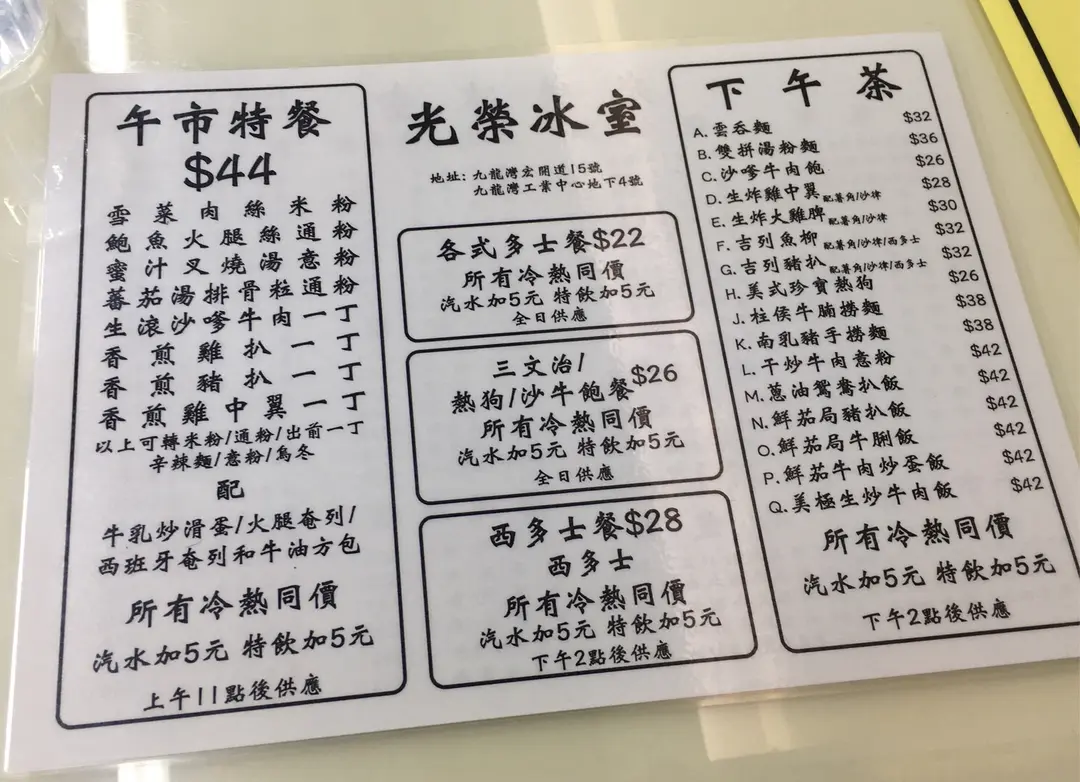 午市特餐
$44
雪菜肉絲米粉
鮑魚火腿絲通粉
蜜汁叉燒湯意粉
蕃茄湯排骨粒通粉
生滾沙嗲牛肉一丁
香煎雞扒一丁
香煎豬扒一丁
香煎雞中翼一丁
以上可轉米粉/通粉/出前一丁
辛辣麵/意粉/烏冬
配
牛乳炒滑蛋/火腿奄列/
西班牙奄列和牛油方包
所有冷熱同價
汽水加5元 特飲加5元
上午11點後供應
光榮冰室
地址: 九龍灣宏開道15號
九龍灣工業中心地下4號
各式多士餐$22
所有冷熱同價
汽水加5元 特飲加5元
全日供應
三文治/
熱狗/沙牛飽餐$26
所有冷熱同價
汽水加5元 特飲加5元
全日供應
西多士餐$28
西多士
所有冷熱同價
汽水加5元 特飲加5元
下午2點後供應
下午茶
A. 雲吞麵 $32
B. 雙拼湯粉麵 $36
C. 沙嗲牛肉飽 $26
D. 生炸雞中翼 配薯角/沙律 $28
E. 生炸火雞髀 配薯角/沙律 $30
F. 吉列魚柳 配薯角/沙律/西多士 $32
G. 吉列豬扒 配薯角/沙律/西多士 $32
H. 美式珍寶熱狗 $26
J. 柱侯牛腩撈麵 $38
K. 南乳豬手撈麵 $38
L. 干炒牛肉意粉 $42
M. 蔥油鴛鴦扒飯 $42
N. 鮮茄局豬扒飯 $42
O. 鮮茄局牛脷飯 $42
P. 鮮茄牛肉炒蛋飯 $42
Q. 美極生炒牛肉飯 $42
所有冷熱同價
汽水加5元 特飲加5元
下午2點後供應